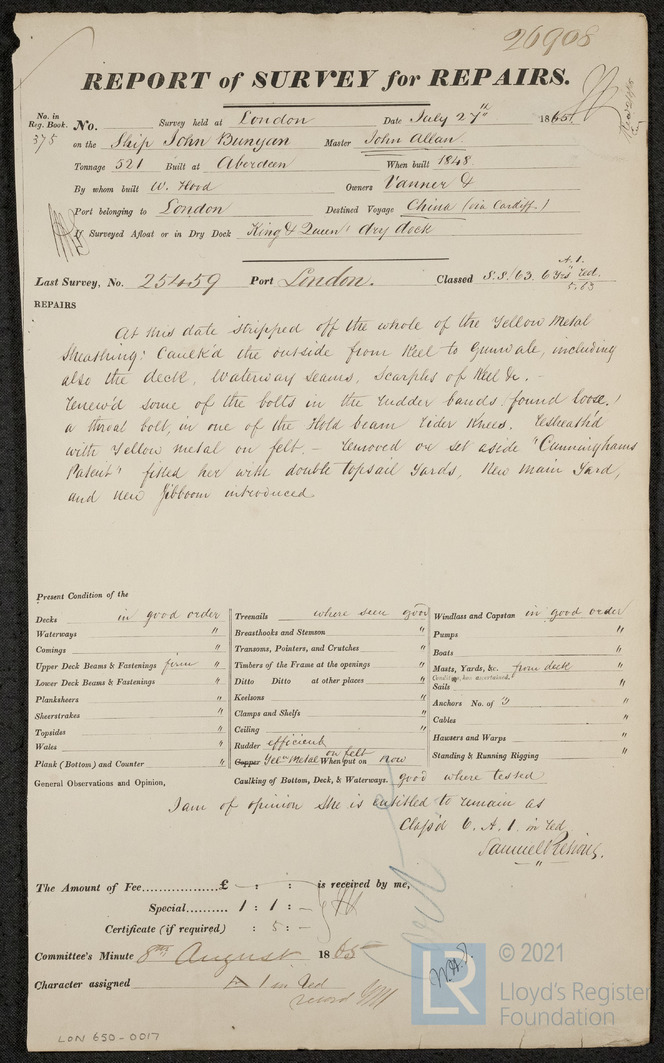 26908
REPORT of SURVEY for REPAIRS.
No. in Reg. Book. No. Survey held at London Date July 27th 1865
375 on the Ship John Bunyan Master John Allan
Tonnage 521 Built at Aberdeen When built 1848
By whom built W. Hood Owners Vanner &
Port belonging to London Destined Voyage China (via Cardiff.)
If Surveyed Afloat or in Dry Dock King & Queen's dry dock
A.1.
Last Survey, No. 25459 Port London. Classed S.S./63. 6 Yrs Red.
5.63
REPAIRS
At this date stripped off the whole of the Yellow Metal
Sheathing: Caulk'd the outside from Keel to Gunwale, including
also the deck, Waterway seams, Scarphs of Keel &c. -
Renew'd some of the bolts in the rudder bands (found loose.)
a throat bolt, in one of the Hold beam Rider Knees. Resheath'd
with Yellow metal on felt. - Removed or set aside "Cunninghams
Patent" fitted her with double topsail Yards, New Main Yard,
and new Jibboom introduced
Present Condition of the
Decks in good order
Waterways "
Comings "
Upper Deck Beams & Fastenings firm "
Lower Deck Beams & Fastenings "
Planksheers "
Sheerstrakes "
Topsides "
Wales "
Plank (Bottom) and Counter "
Treenails where seen good
Breasthooks and Stemson "
Transoms, Pointers, and Crutches "
Timbers of the Frame at the openings "
Ditto Ditto at other places "
Keelsons "
Clamps and Shelfs "
Ceiling "
Rudder efficient
Copper Yel. Metal on felt When put on now
Caulking of Bottom, Deck, & Waterways. good where tested
Windlass and Capston in good order
Pumps "
Boats "
Masts, Yards, &c. from deck "
Condition, how ascertained,
Sails "
Anchors No. of 3 "
Cables "
Hawsers and Warps "
Standing & Running Rigging "
General Observations and Opinion,
I am of opinion she is entitled to remain as
Class'd 6. A. 1. in red
Samuel Pretious.
The Amount of Fee................£ - : : - is received by me,
Special.......... 1 : 1 : -
Certificate (if required) : 5 : -
Committee's Minute 8th August 1865
Character assigned A 1 in Red
record
W.H.J.
LR © 2021
Lloyd's Register
Foundation
LON 650-0017